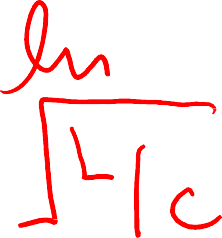 ln
√L/C